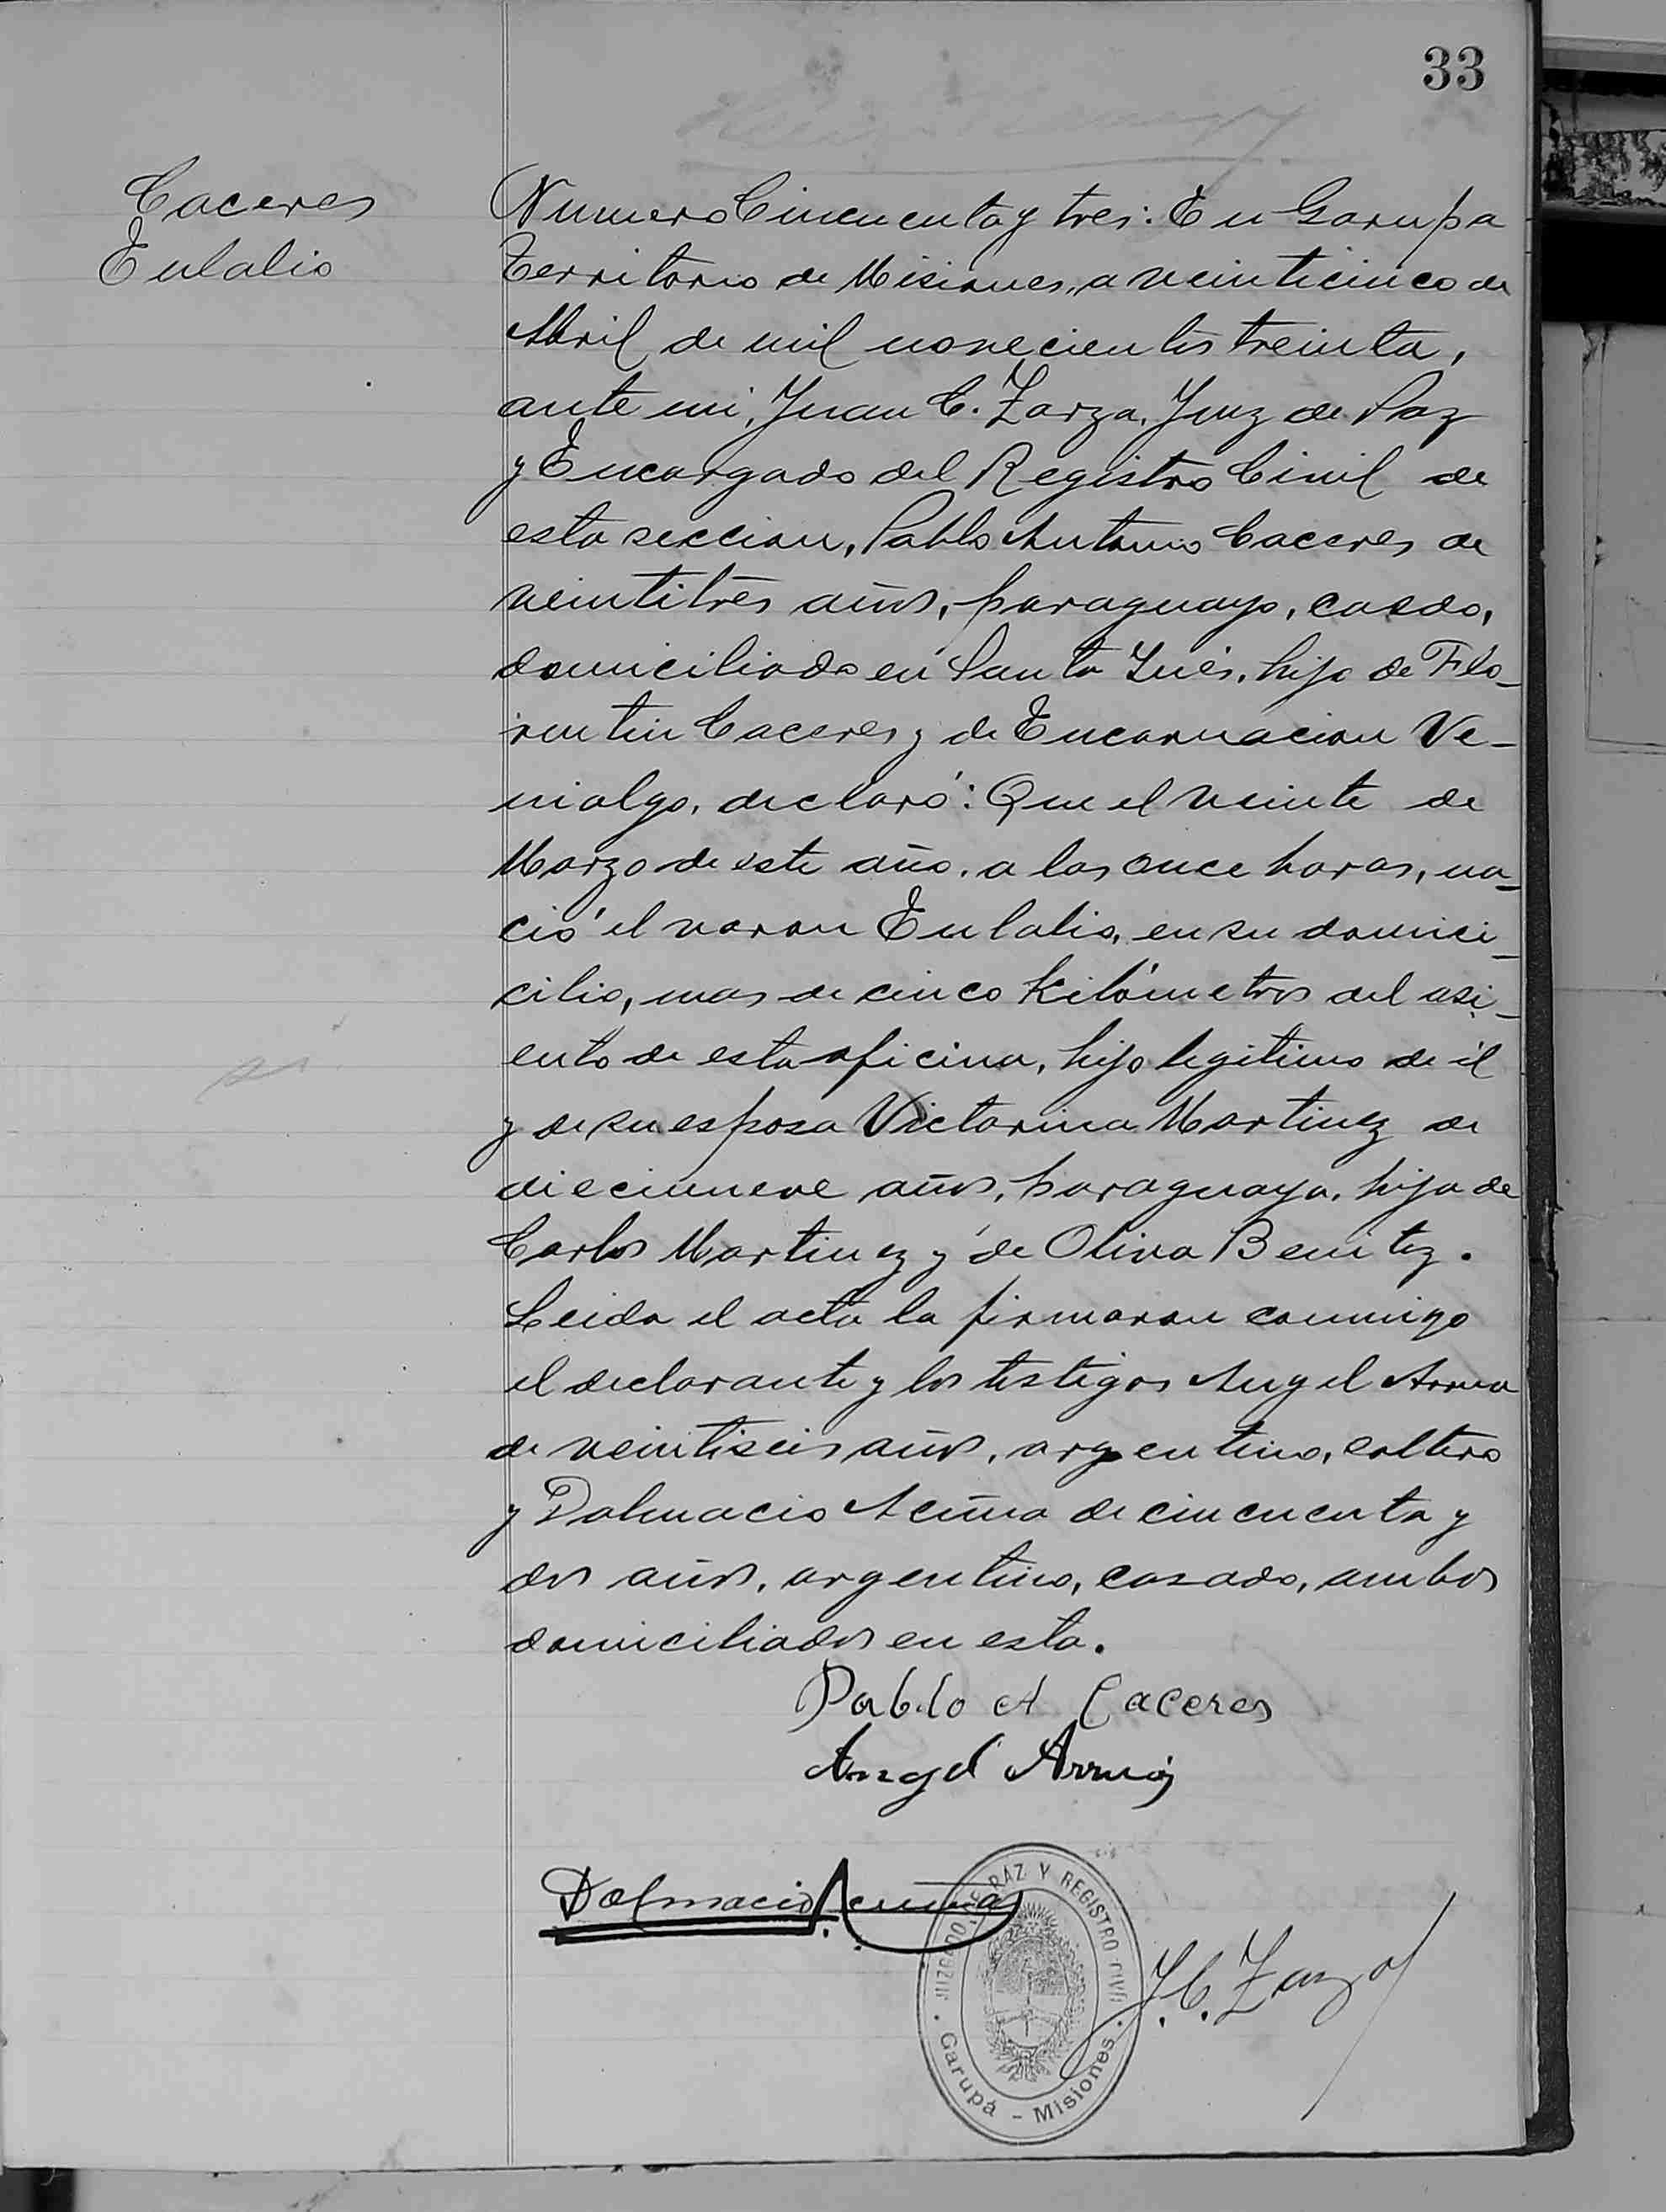 33
Caceres
Eulalio
Numero Cincuenta y tres: En Garupa
Territorio de Misiones, a veinticinco de
Abril de mil novecientos treinta,
ante mi, Juan C. Zarza, Juez de Paz
y Encargado del Registro Civil de
esta seccion, Pablo Antonio Caceres de
veintitres años, paraguayo, casdo,
domiciliado en Santa Inés, hijo de Flo-
rentin Caceres y de Encarnacion Ve-
nialgo, declaró: Que el veinte de
Marzo de este año, a las once horas, na-
ció el varon Eulalio, en su domici-
cilio, mas de cinco Kilómetros del asi-
ento de esta oficina, hijo legitimo de él
y de su esposa Victorina Martinez de
diecinueve años, paraguaya, hija de
Carlos Martinez y de Oliva Benitez.
Leida el acta la firmaron conmigo
el declarante y los testigos Angel Arrua
de veintiseis años, argentino, soltero
y Dalmacio Acuña de cincuenta y
dos años, argentino, casado, ambos
domiciliados en esta.
Pablo A Caceres
Angel Arrua
Dalmacio Acuña
JUZGADO DE PAZ Y REGISTRO CIVIL
Garupá - Misiones
J. C. Zarza